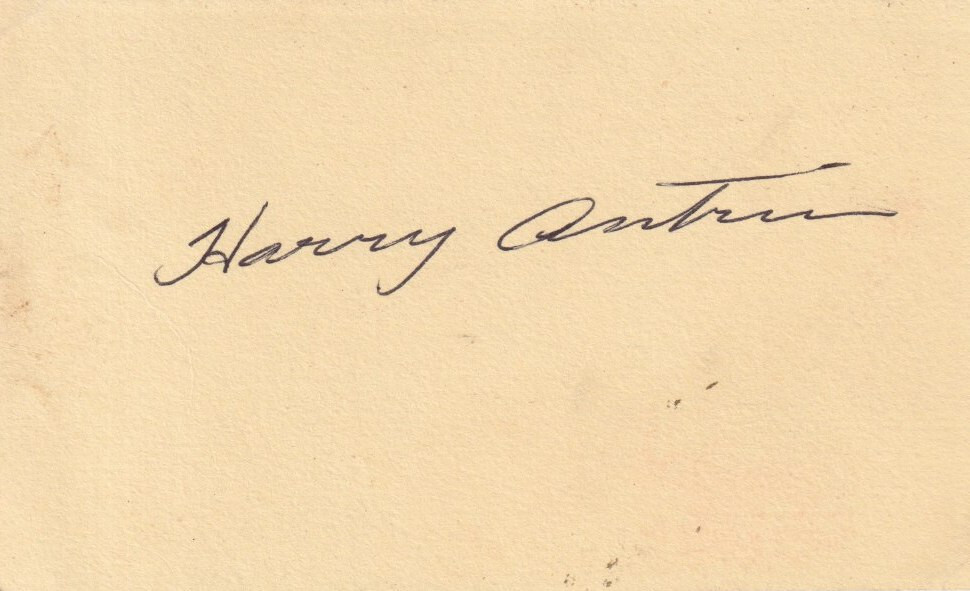 Harry Antrim